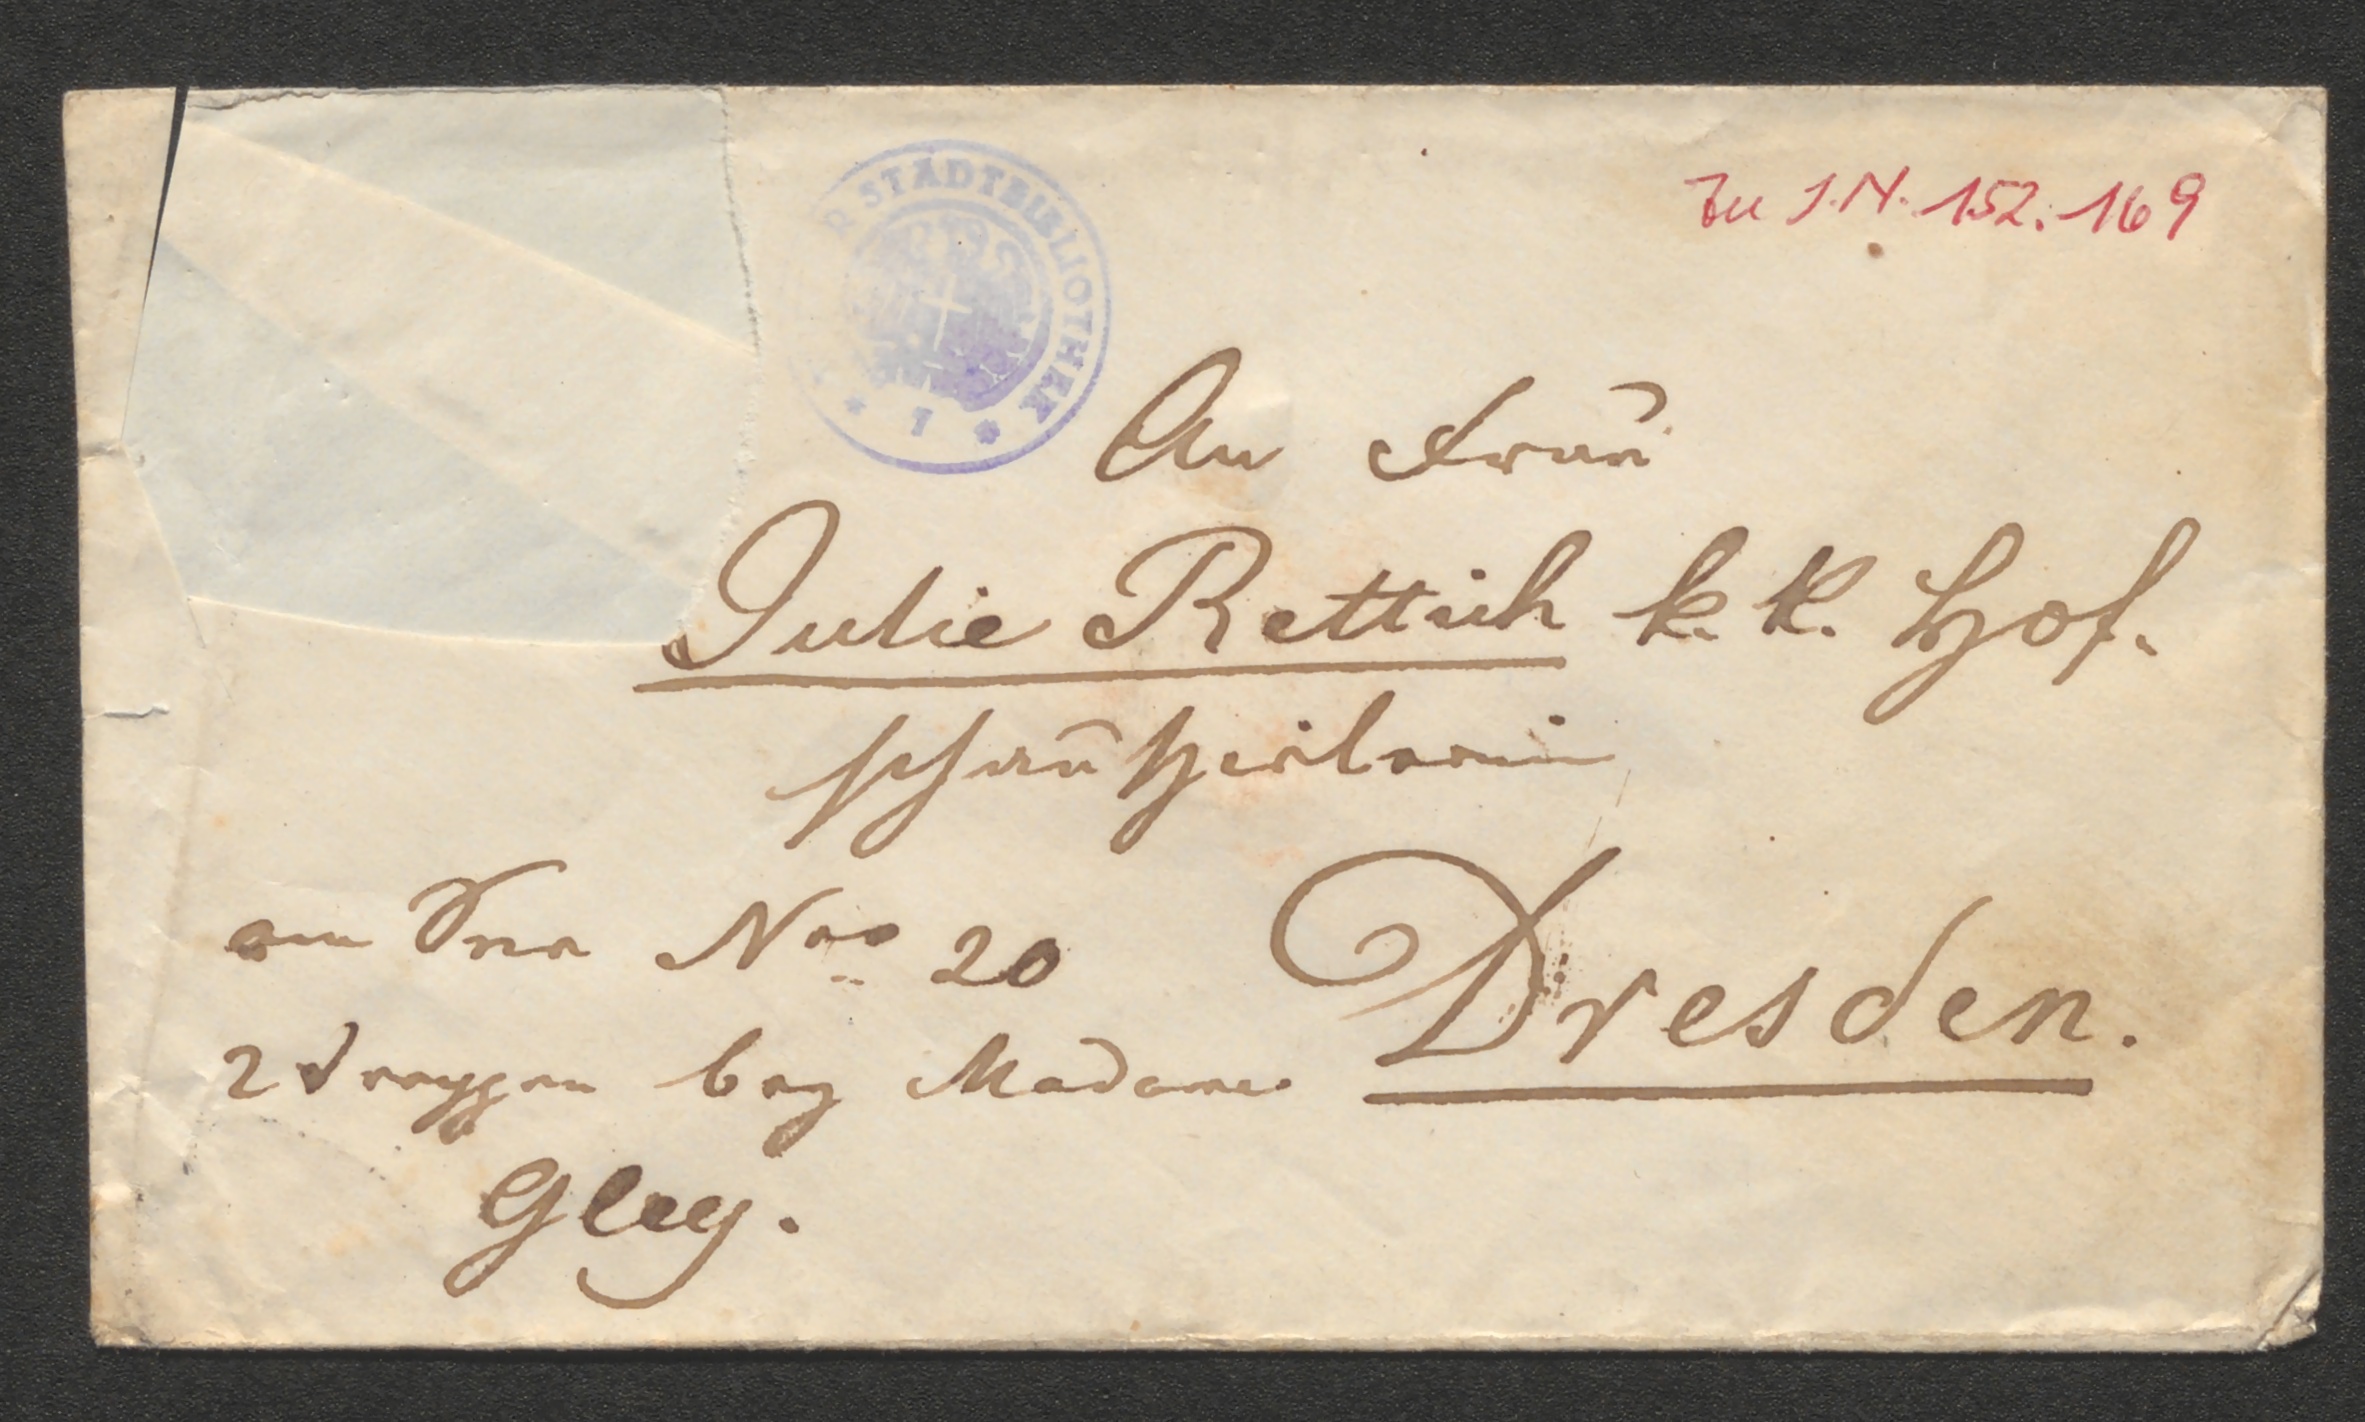 Zu I.N. 152.169
R STADTBIBLIOTHEK
* 7 *
An Frau
Julie Rettich k. k. Hof-
schauspielerin
am See Nro 20
Dresden.
2 Treppen bey Madame
Gley.